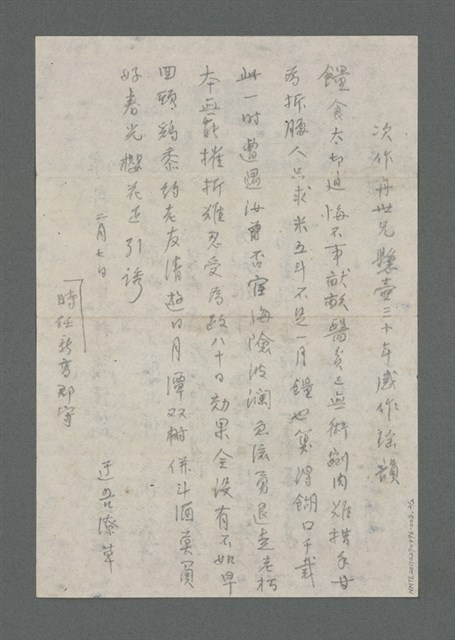 次作舟世兄懸壺三十年感作瑤韻
饘食太切迫悔不事畎畝醫貧乏無術剜肉難措手毋
為折腰人只求米五斗不足一月饘也算得餬口千載
此一時遭遇汝曾否宦海險波瀾急流勇退走老朽
本無能摧折難忍受為政八十日効果全沒有不如早
回頭鷄黍約老友清遊日月潭双樹併斗酒莫負
好春光櫻花正引誘
二月七日
時任新高郡守
述曾潦草